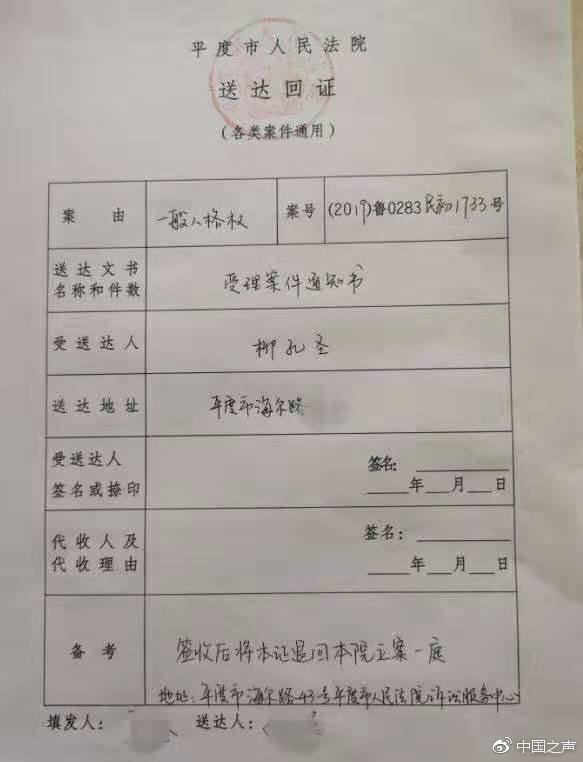 平度市人民法院
送达回证
（各类案件通用）
案由 一般人格权 案号 (2019)鲁0283民初1733号
送达文书
名称和件数 受理案件通知书
受送达人 柳孔圣
送达地址 平度市海尔路
受送达人 签名：
签名或捺印 年 月 日
代收人及 签名：
代收理由 年 月 日
备考 签收后将本证退回本院立案一庭
地址：平度市海尔路43号平度市人民法院诉讼服务中心
填发人： 送达人：
中国之声